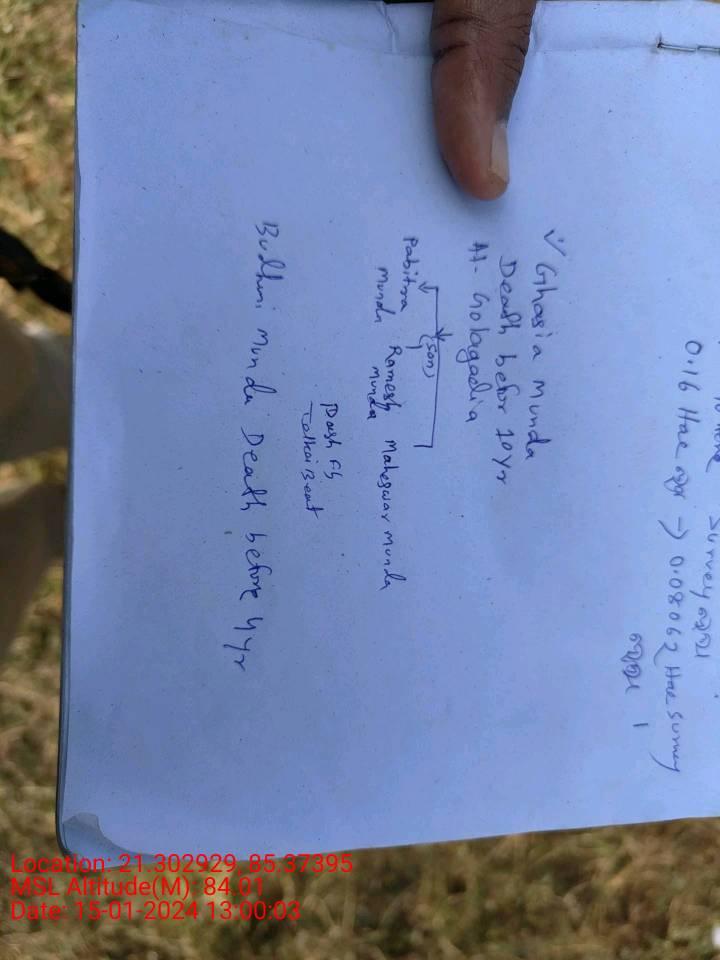 Survey
0.16 Hac → 0.08062 Hac survey
Ghasia Munda
Death befor 10yr
At- Golagadia
(son)
Pabitra Munda
Ramesh Munda
Maheswar Munda
Budhuni Munda Death before 4yr
Location: 21.302929, 85.37395
MSL Altitude(M): 84.01
Date: 15-01-2024 13:00:03